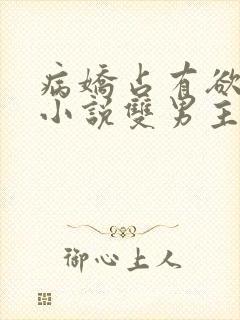 病嬌占有欲
小說雙男主
御心上人